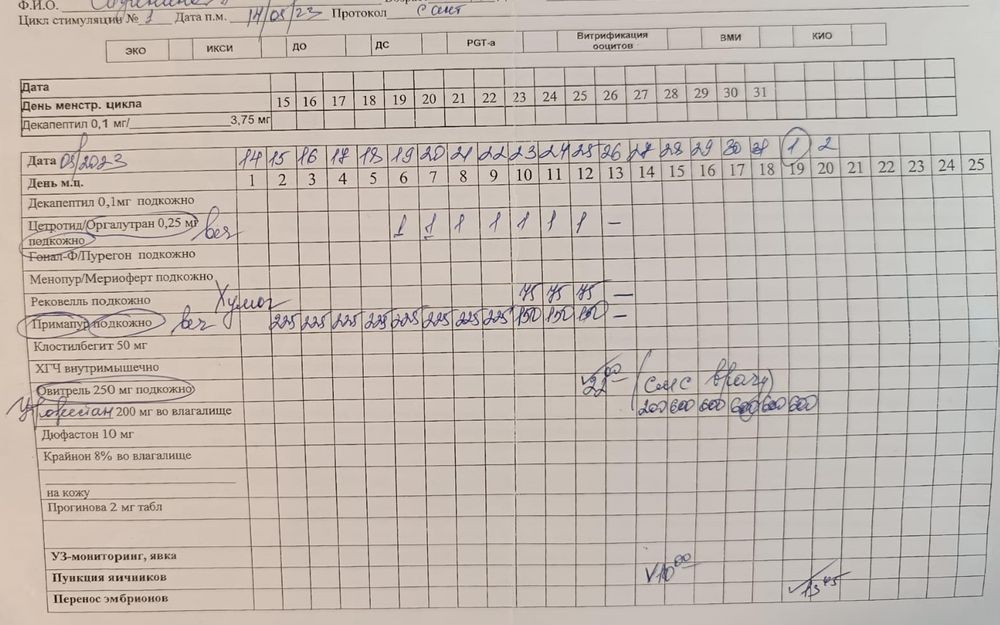 Ф.И.О.
Цикл стимуляции № 1 Дата п.м. 14/08/23 Протокол с ант
ЭКО ИКСИ ДО ДС PGT-a Витрификация ооцитов ВМИ КИО
Дата
День менстр. цикла 15 16 17 18 19 20 21 22 23 24 25 26 27 28 29 30 31
Декапептил 0,1 мг/ 3,75 мг
Дата 08/2023 14 15 16 17 18 19 20 21 22 23 24 25 26 27 28 29 30 31 1 2
День м.ц. 1 2 3 4 5 6 7 8 9 10 11 12 13 14 15 16 17 18 19 20 21 22 23 24 25
Декапептил 0,1мг подкожно
Цетротид/Оргалутран 0,25 мг подкожно веч 1 1 1 1 1 1 1 –
Гонал-Ф/Пурегон подкожно
Менопур/Мериоферт подкожно
Рековелль подкожно Хумог 75 75 75 –
Примапур подкожно веч 225 225 225 225 225 225 225 225 150 150 150 –
Клостилбегит 50 мг
ХГЧ внутримышечно
Овитрель 250 мг подкожно 22 00 (смс врачу)
200 мг во влагалище 200 600 600 600 600 600
Дюфастон 10 мг
Крайнон 8% во влагалище
на кожу
Прогинова 2 мг табл
УЗ-мониторинг, явка
Пункция яичников 10 00
Перенос эмбрионов 13 45